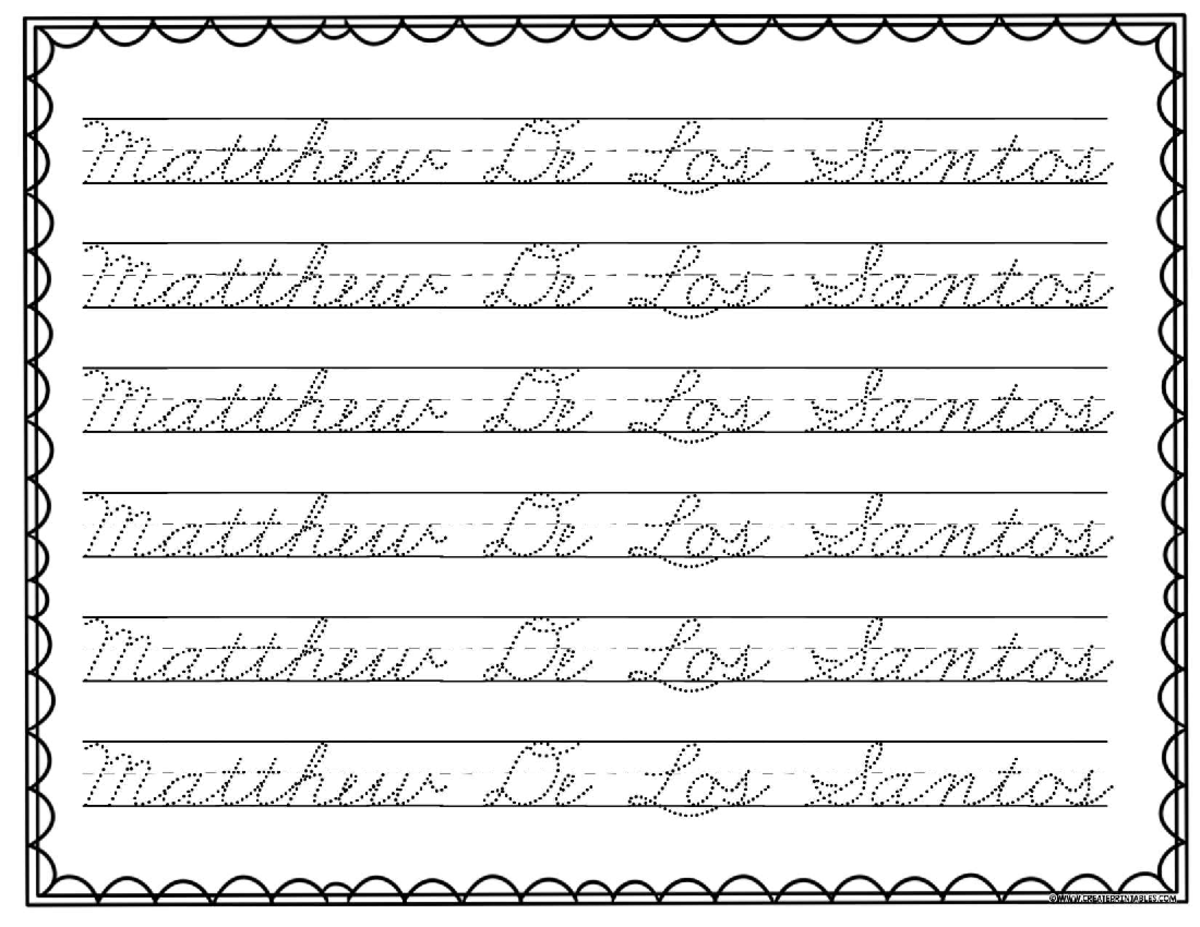 Matthew De Los Santos
Matthew De Los Santos
Matthew De Los Santos
Matthew De Los Santos
Matthew De Los Santos
Matthew De Los Santos
©WWW.CREATEPRINTABLES.COM